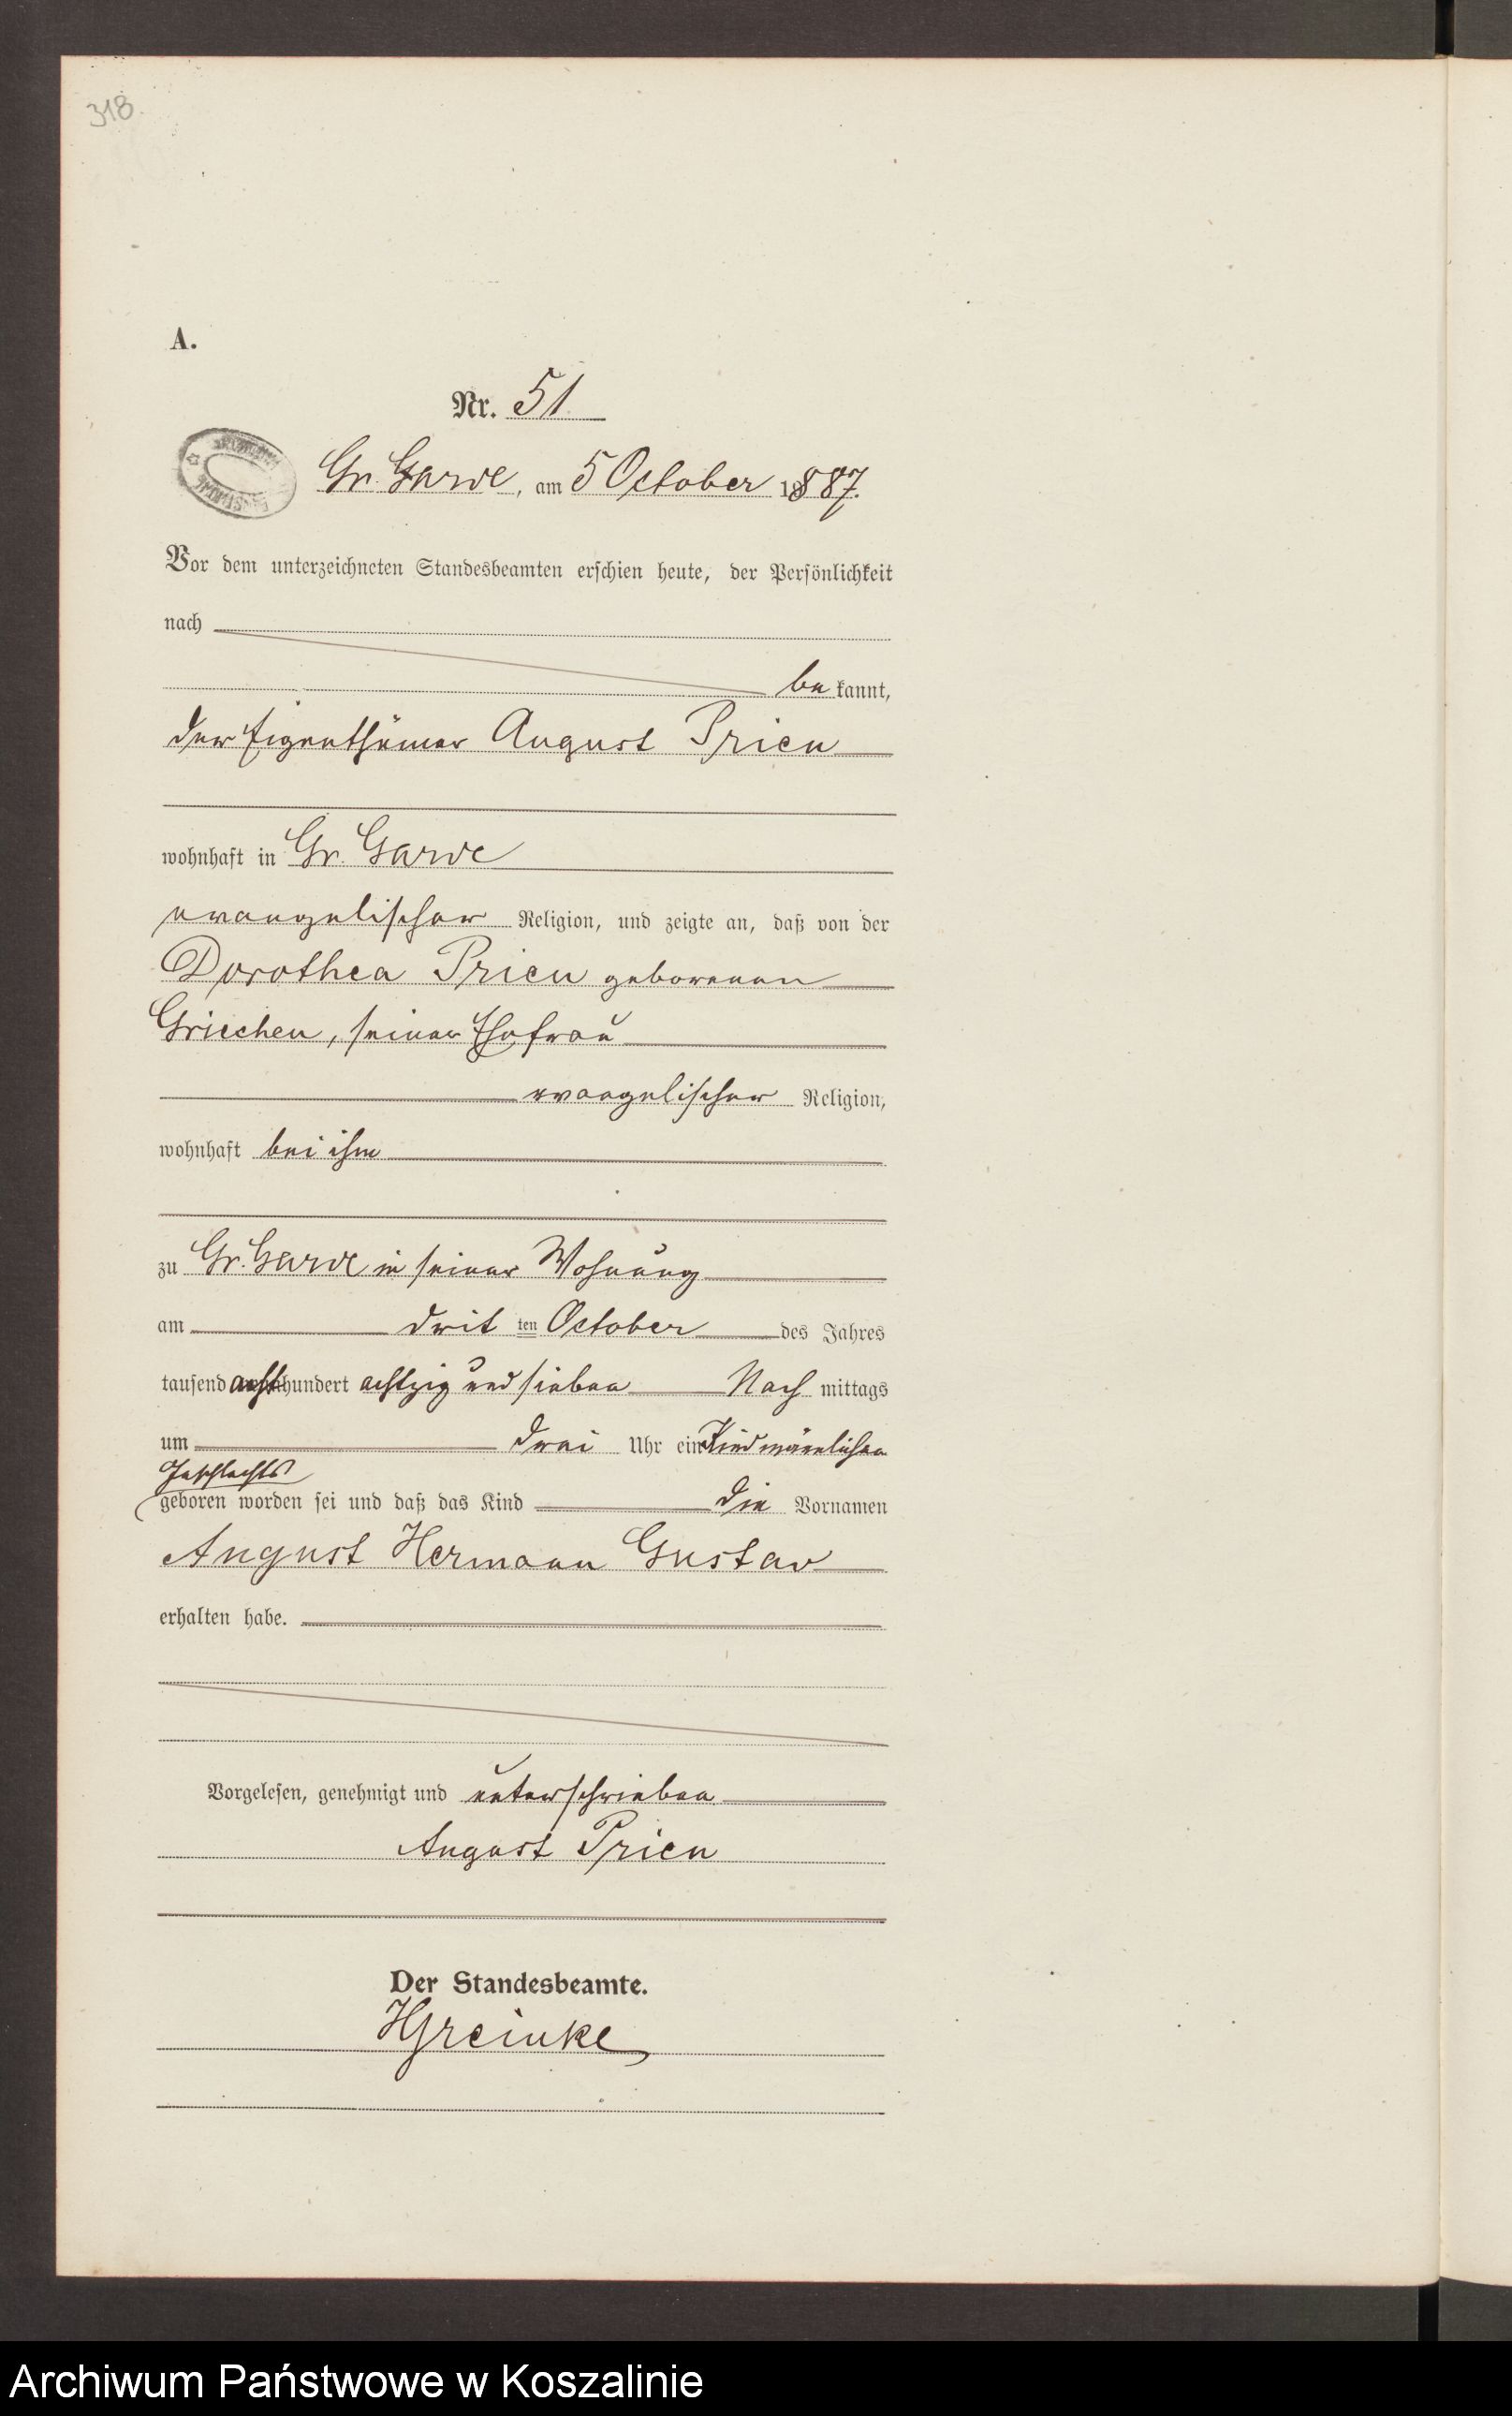 318.
A.
Nr. 51
Gr. Garde, am 5 October 1887.
Vor dem unterzeichneten Standesbeamten erschien heute, der Persönlichkeit
nach
be kannt,
der Eigenthümer August Prien
wohnhaft in Gr. Garde
evangelischer Religion, und zeigte an, daß von der
Dorothea Prien geborenen
Griechen, seiner Ehefrau
evangelischer Religion,
wohnhaft bei ihm
zu Gr. Garde in seiner Wohnung
am drit ten October des Jahres
tausend acht hundert achtzig und sieben Nach mittags
um drei Uhr ein Kind männlichen
Geschlechts
geboren worden sei und daß das Kind die Vornamen
August Hermann Gustav
erhalten habe.
Vorgelesen, genehmigt und unterschrieben
August Prien
Der Standesbeamte.
HGreinke
Archiwum Państwowe w Koszalinie